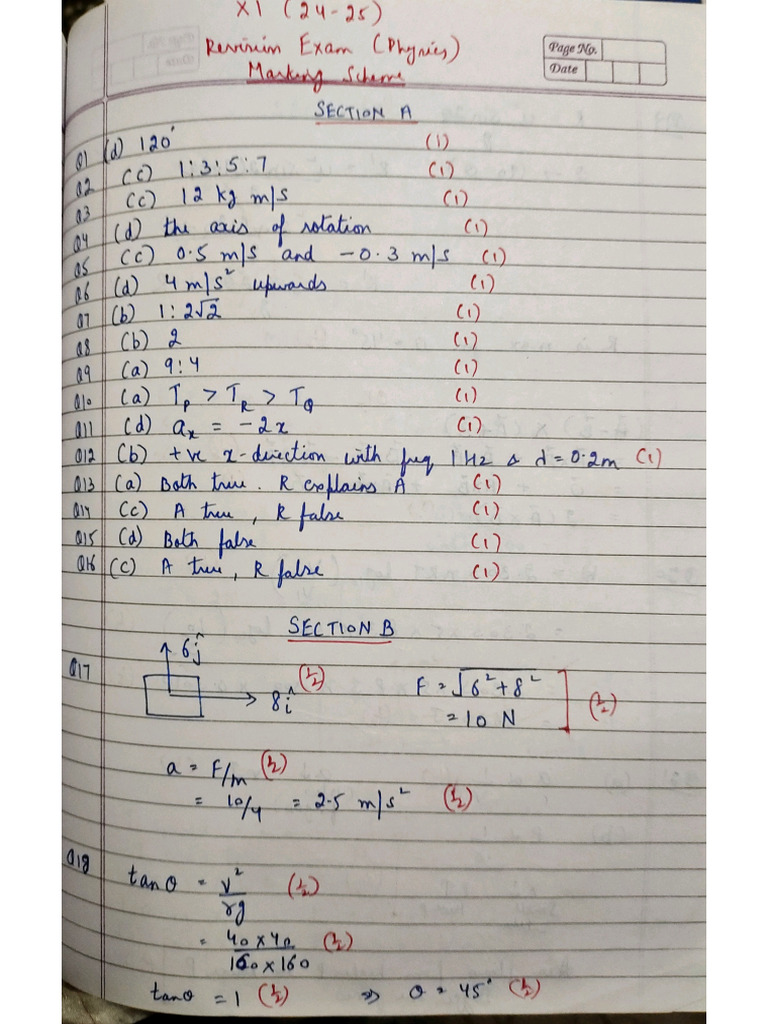 XI (24-25)
Revision Exam (Physics)
Marking Scheme
Page No.
Date
SECTION A
Q1 (d) 120° (1)
Q2 (c) 1:3:5:7 (1)
Q3 (c) 12 kg m/s (1)
Q4 (d) the axis of rotation (1)
Q5 (c) 0.5 m/s and -0.3 m/s (1)
Q6 (d) 4 m/s² upwards (1)
Q7 (b) 1:2√2 (1)
Q8 (b) 2 (1)
Q9 (a) 9:4 (1)
Q10 (a) T_P > T_R > T_Q (1)
Q11 (d) a_x = -2x (1)
Q12 (b) +ve x-direction with freq 1 Hz & λ = 0.2m (1)
Q13 (a) Both true. R explains A (1)
Q14 (c) A true, R false (1)
Q15 (d) Both false (1)
Q16 (c) A true, R false (1)
SECTION B
Q17 6ĵ 8î (½) F = √6²+8² 
= 10 N (½)
a = F/m (½)
= 10/4 = 2.5 m/s² (½)
Q18 tanθ = v²/rg (½)
= 40×40/160×160 (½)
tanθ = 1 (½) ⇒ θ = 45° (½)